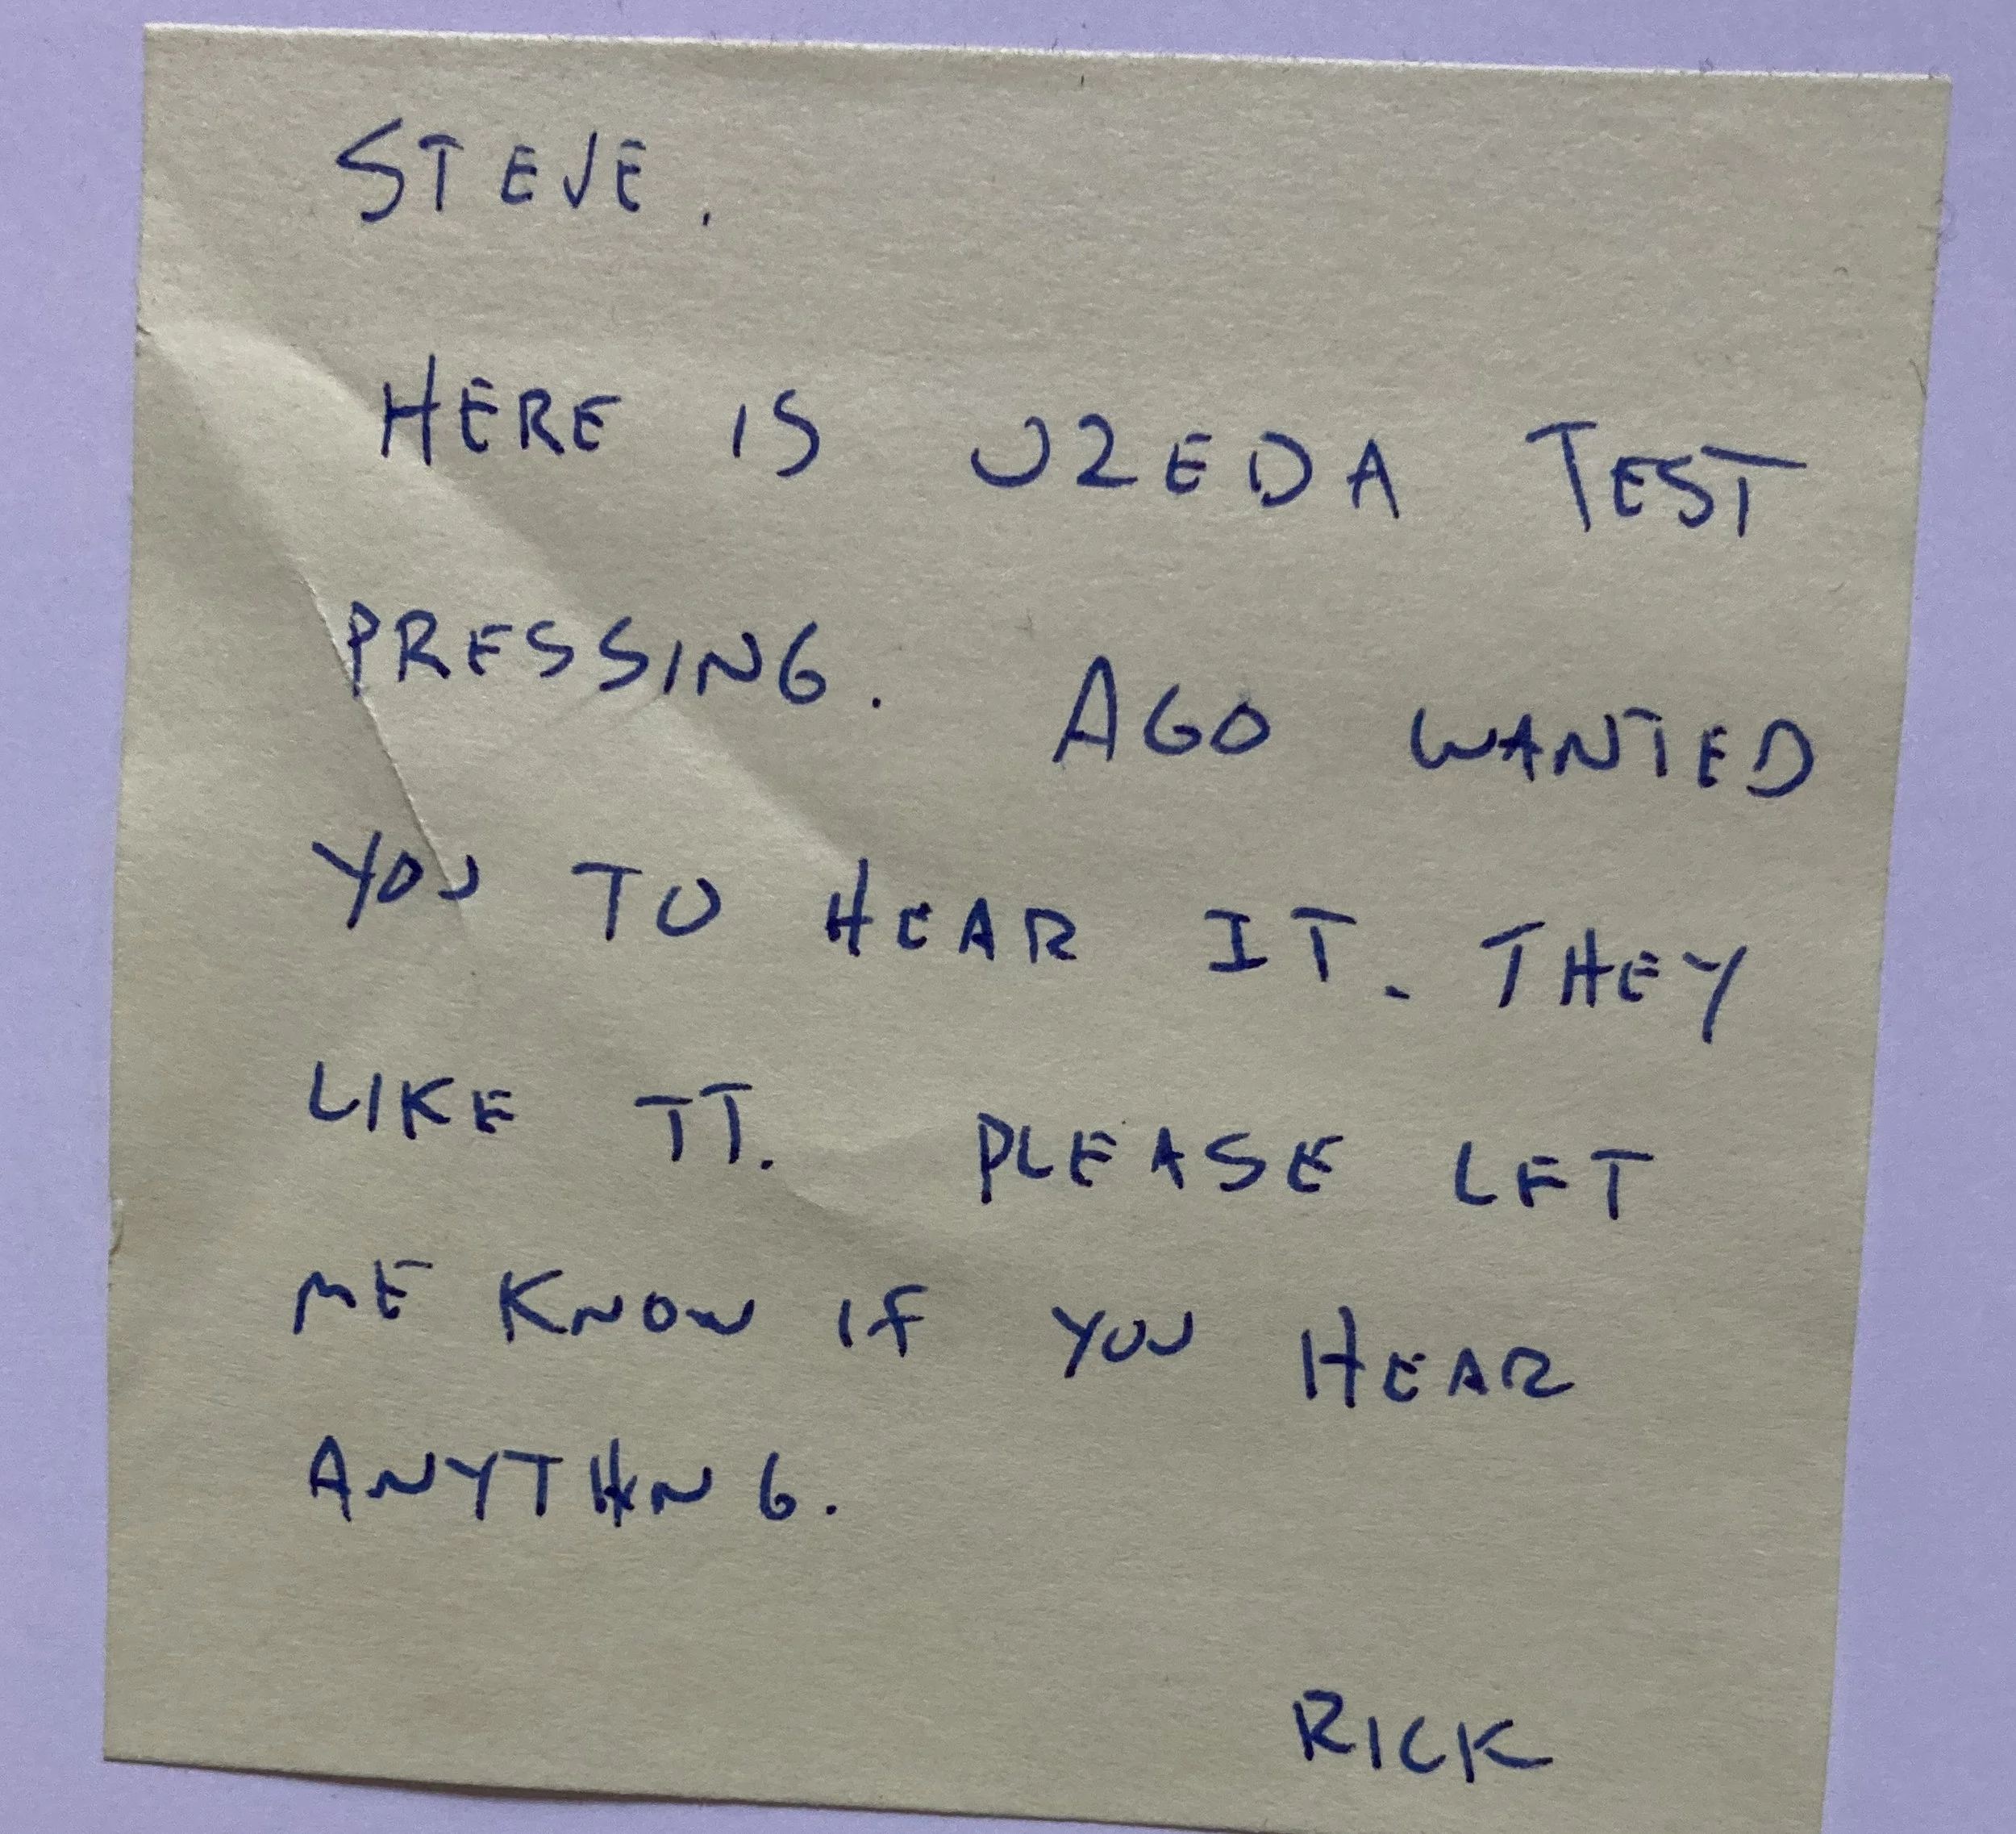 STEVE,
HERE IS UZEDA TEST
PRESSING. AGO WANTED
YOU TO HEAR IT. THEY
LIKE IT. PLEASE LET
ME KNOW IF YOU HEAR
ANYTHING.
RICK